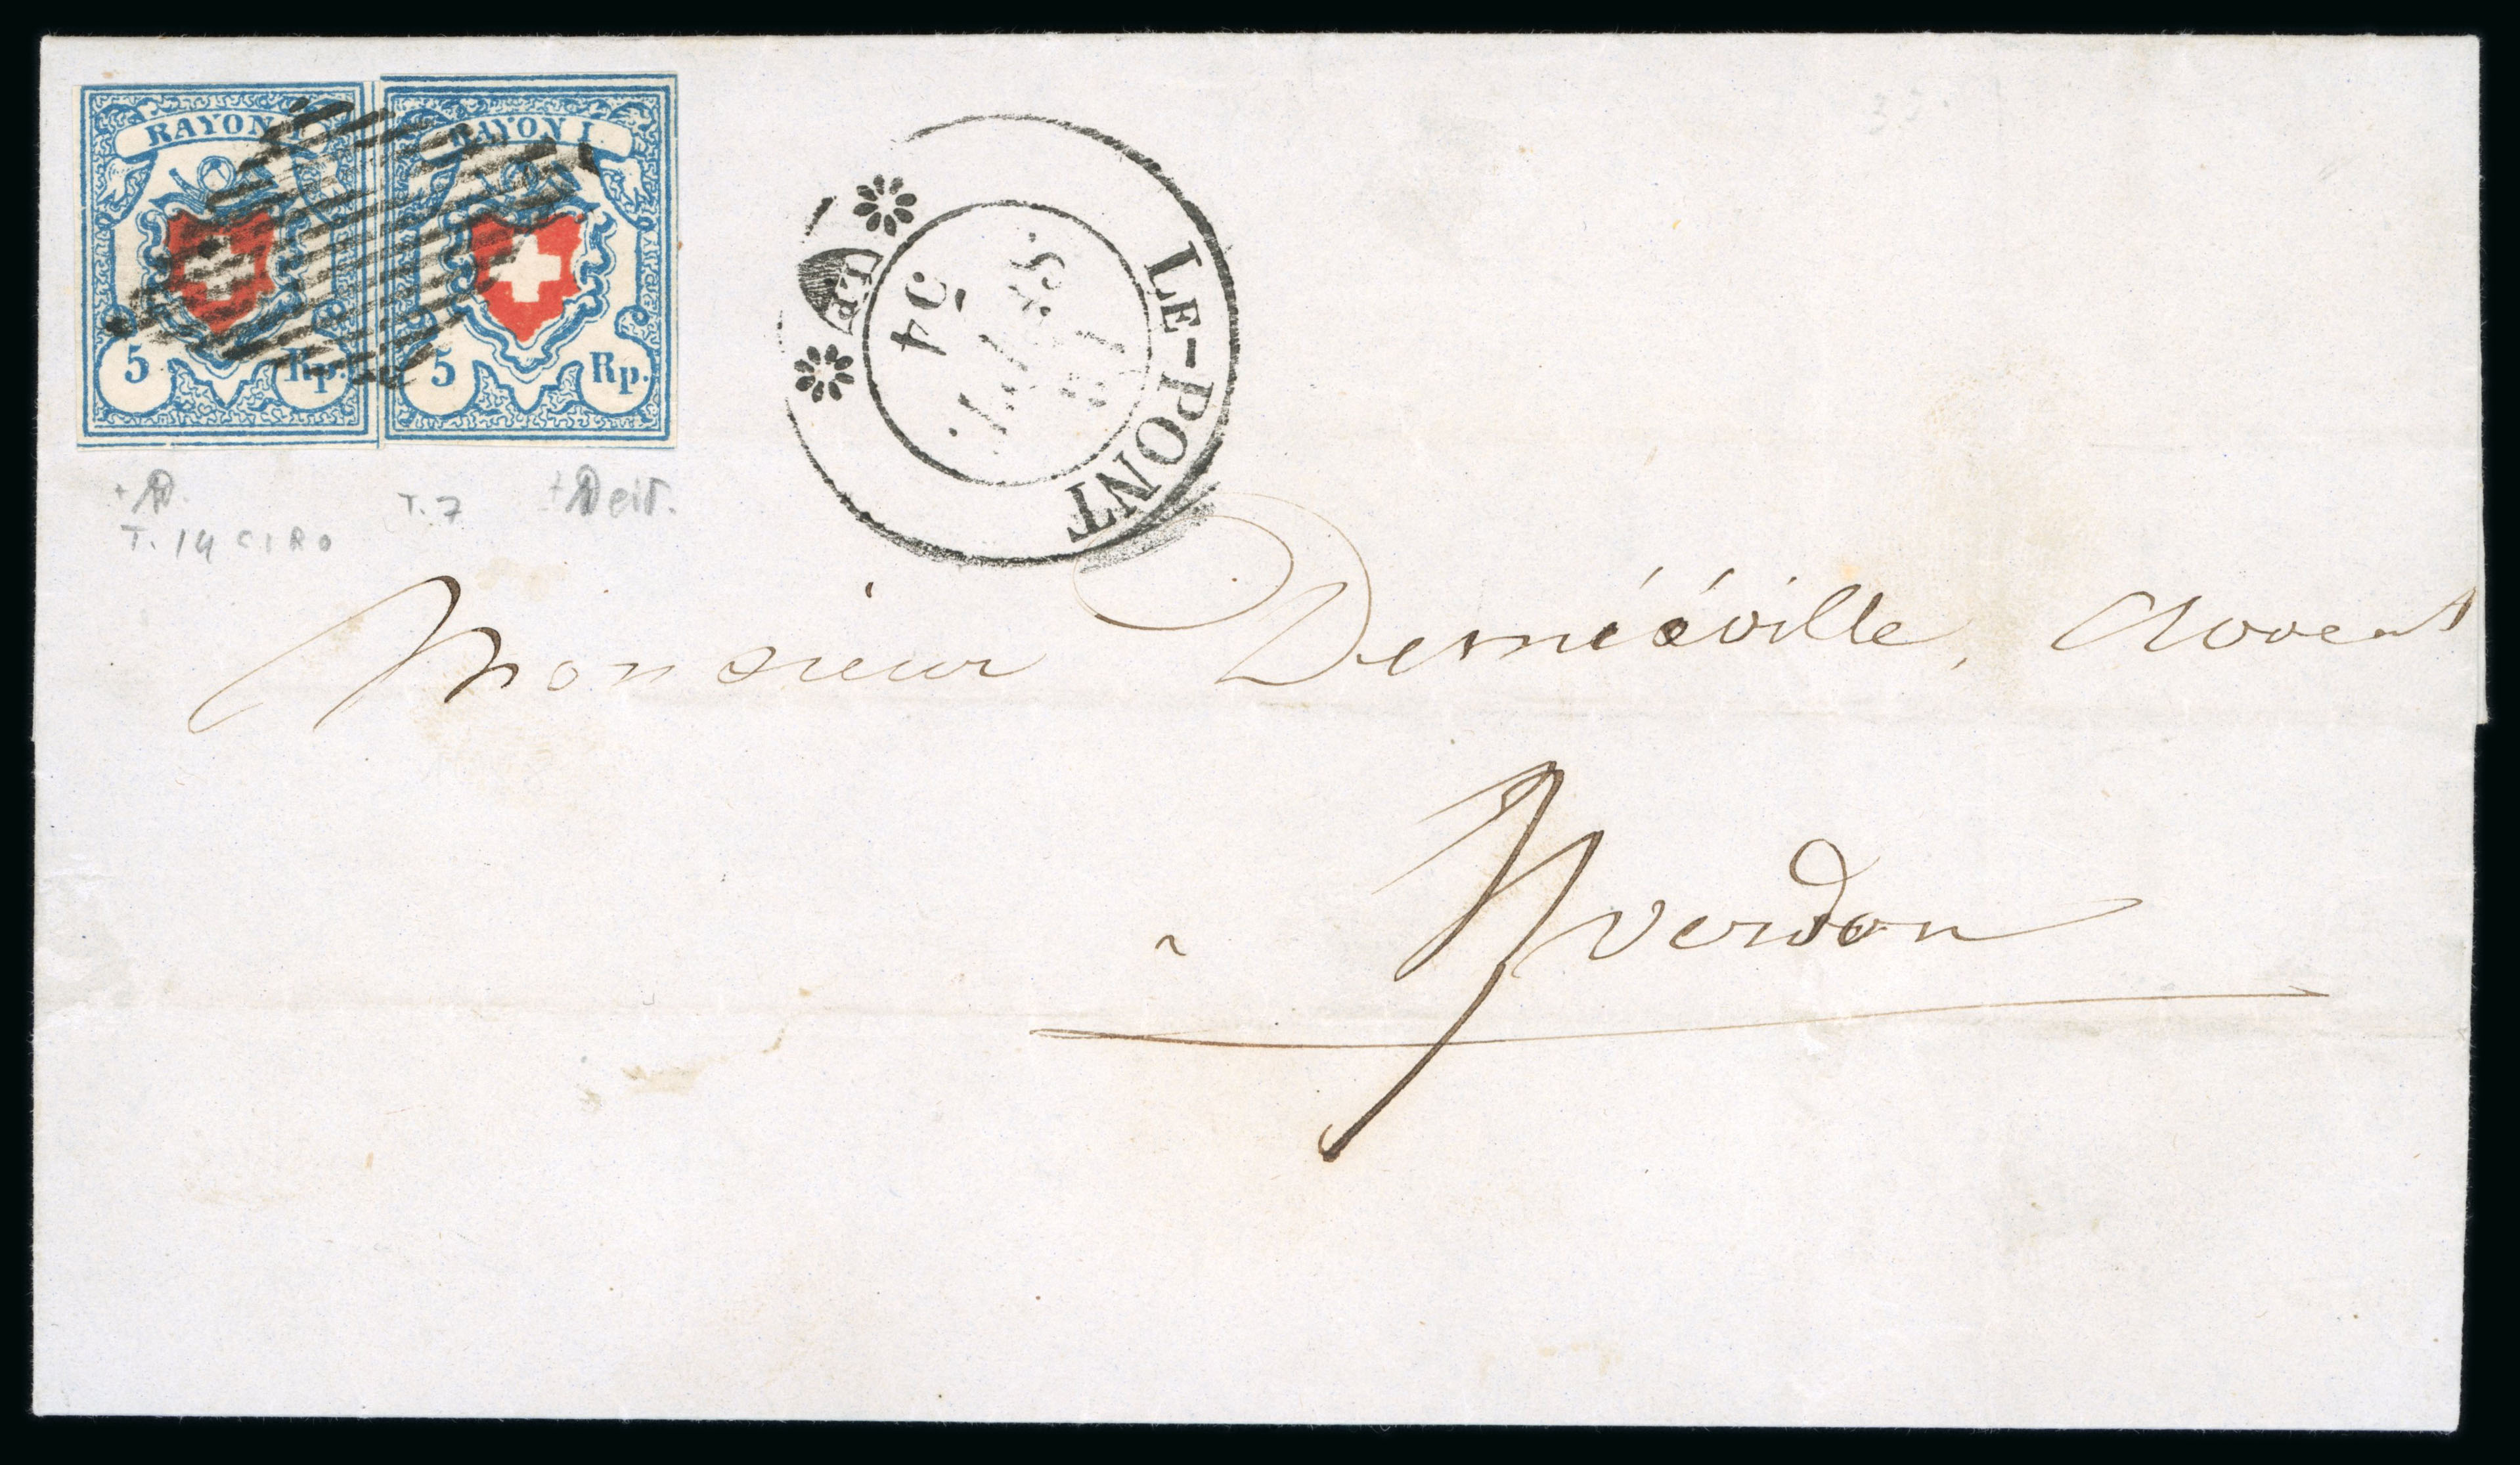 RAYON I
5 Rp.
RAYON I
5 Rp.
LE-PONT
54
T. 14 CIRO
T. 7
Monsieur Demiéville, Avocat
à Yverdon